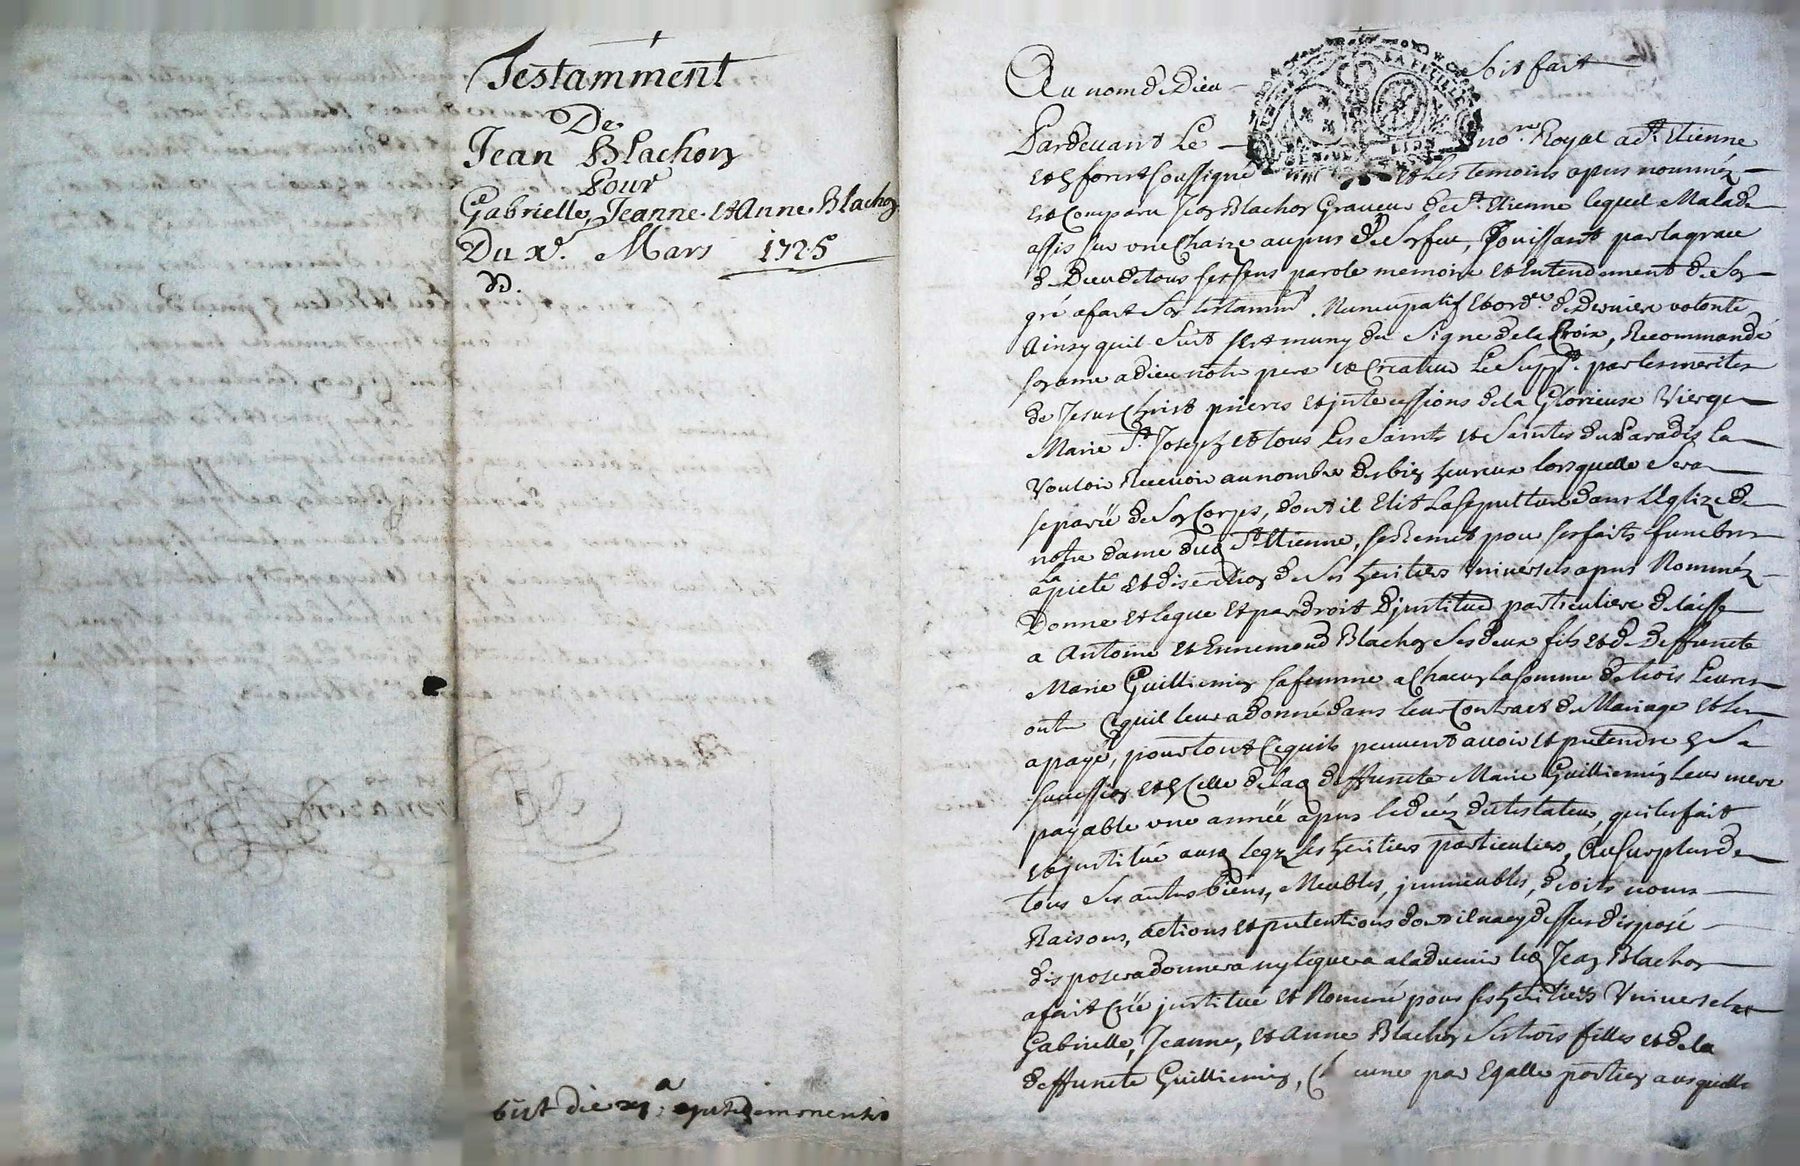 Testamment
De
Jean Blachon
Pour
Gabrielle, Jeanne. et Anne. Blachon
Du xe. Mars 1725
Au nom de Dieu Soit fait
Pardevant Le nore. Royal a St. Etienne
et en forest soussigné et Les temoins apres nommés
est comparu Jean Blachon Graveur de St. Etienne lequel Malade
assis sur une chaize aupres de son feu, Jouissant par la grace
de Dieu de tous ses sens parole memoire et Entendement de son
gré a fait son testammt. Nuncupatif et ordce. de derniere volonté
Ainsy quil suit sest muny du Signe de la Croix, Recommandé
son ame a dieu notre pere et Createur Le Suppt. par les merites
de Jesus Christ prieres et intercessions de la Glorieuse Vierge
Marie St. Joseph et tous Les Saints et Saintes du Paradis La
Vouloir Recevoir au nombre des bien heureux lors quelle sera
separéë de son Corps, dont il Elit La sepulture dans l'Eglize de
notre dame dud St. Etienne, se remet pour ses faits funebres
a la pieté et discretion de ses heritiers Universels apres Nommés
Donne et legue et par droit D'institued particuliere delaisse
a Antoine et Ennemond Blachon Ses deux fils et de Deffuncte
Marie Guilliemin sa femme a Chacun la somme de trois Livres
outre Cequil leur a donné dans leur Contract de Mariage et leur
a payé, pour tout Cequils peuvent avoir et pretendre en Sa
succession et en Celle de lad deffuncte Marie Guilliemin leur mere
payable une annéë apres le decés du testateur, qui les fait
et institué auxd legz ses heritiers particuliers, Au surplus de
tous Ses autres biens, Meubles, immeubles, droits noms
Raisons, actions et pretentions dont il na cy dessus disposé
disposera donnera ny leguera a ladvenir led Jean Blachon
a fait créé institué et Nommé pour ses heritiers Universelles
Gabrielle, Jeanne, et Anne Blachon Ses trois filles et de la
deffuncte Guilliemin, Ch cune par Egalle portion ausquelle